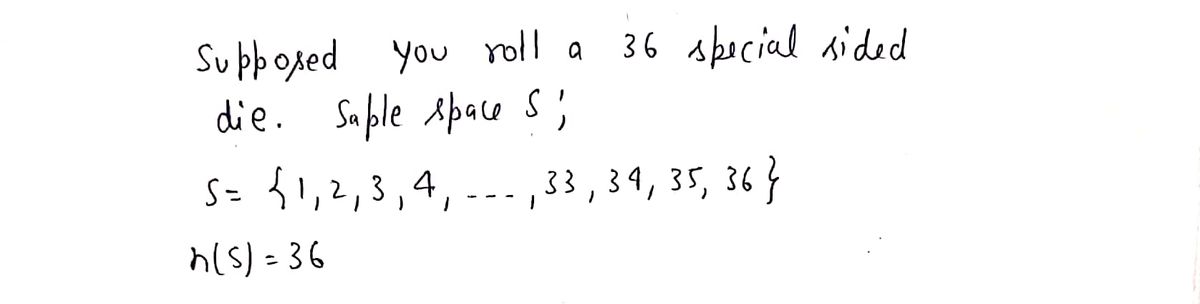 Supposed you roll a 36 special sided
die. Saple space S;
S= {1,2,3,4, ---,33,34,35,36}
n(S) = 36